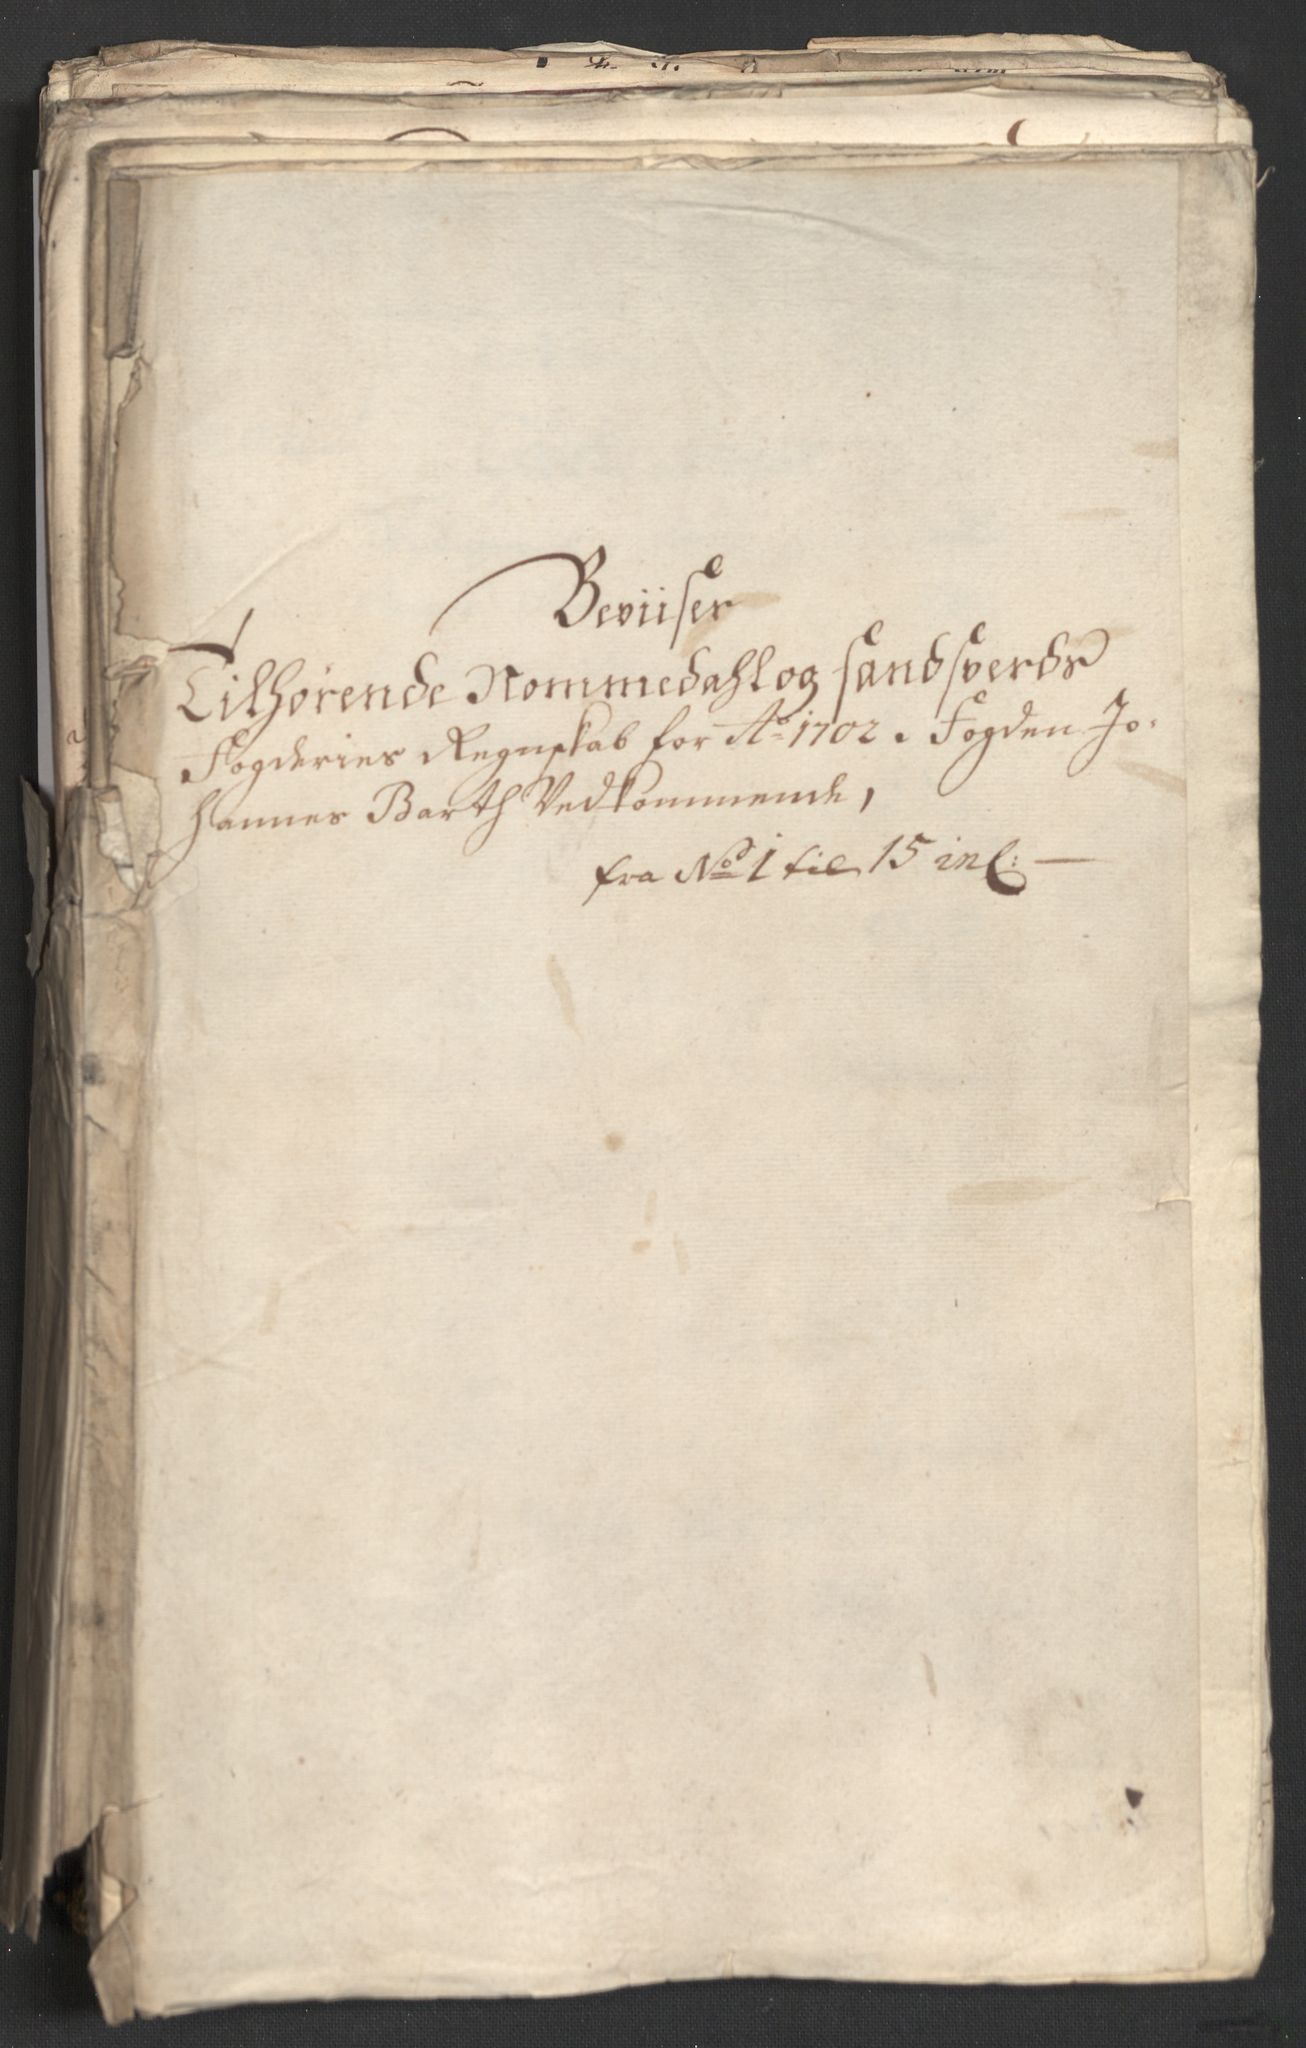 Beviiser
Tilhørende Nommedahl og Sandsverds
Fogderies Regnskab for Ao 1702. Fogden Jo-
hannes Barth Vedkommende,
fra No 1 til 15 incl: